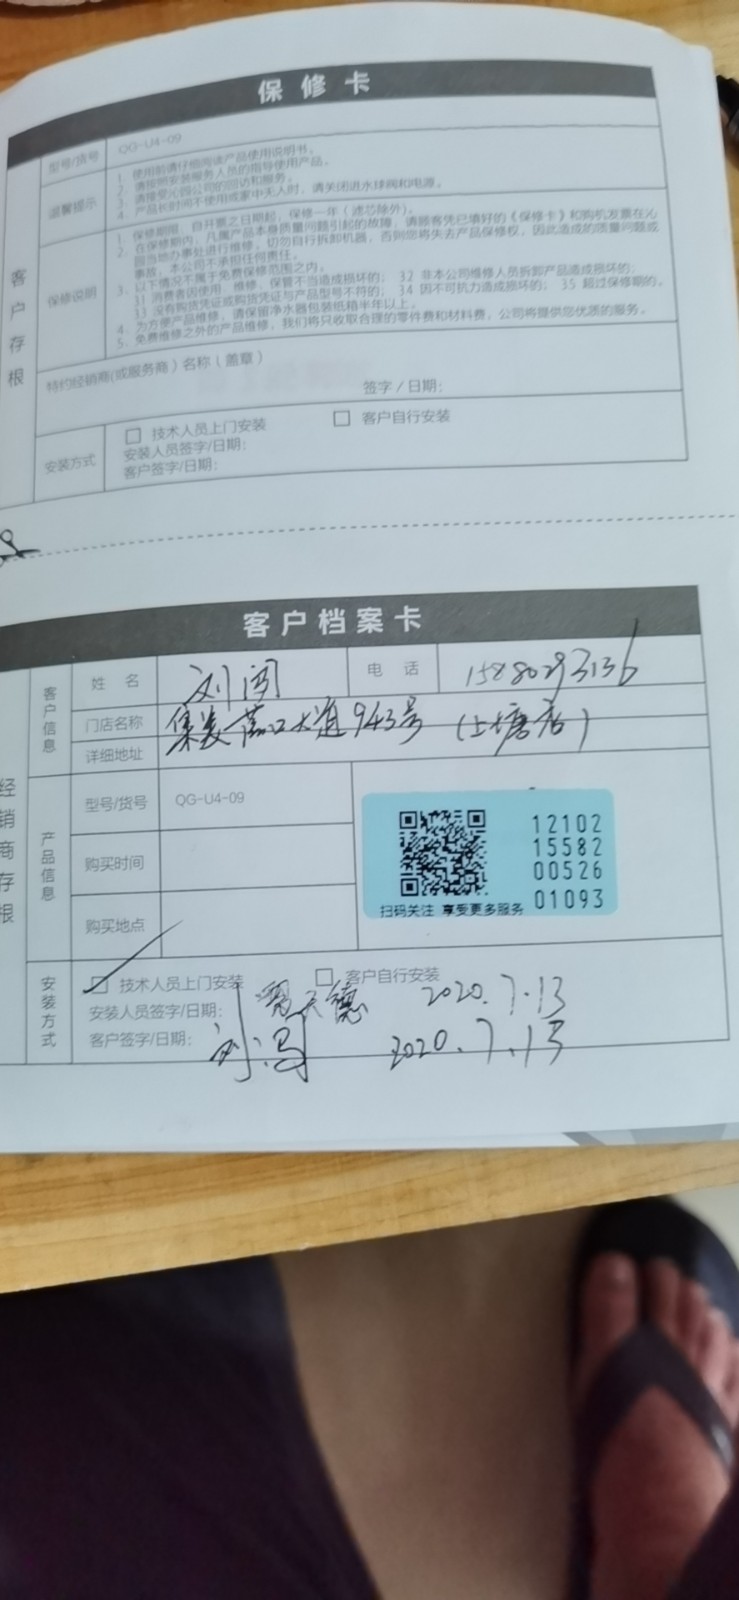 保修卡
客户存根
型号/货号 QG-U4-09
温馨提示
1、使用前请仔细阅读产品使用说明书。
2、请按照安装服务人员的指导使用产品。
3、请接受沁园公司的回访和服务。
4、产品长时间不使用或家中无人时，请关闭进水球阀和电源。
保修说明
1、保修期限：自开票之日期起，保修一年（滤芯除外）。
2、在保修期内，凡属产品本身质量问题引起的故障，请顾客凭已填好的《保修卡》和购机发票在沁
园当地办事处进行维修，切勿自行拆卸机器，否则您将失去产品保修权，因此造成的质量问题或
事故，本公司不承担任何责任。
3、以下情况不属于免费保修范围之内。
31 消费者因使用、维修、保管不当造成损坏的； 32 非本公司维修人员拆卸产品造成损坏的；
33 没有购货凭证或购货凭证与产品型号不符的； 34 因不可抗力造成损坏的； 35 超过保修期的。
4、为方便产品维修，请保留净水器包装纸箱半年以上。
5、免费维修之外的产品维修，我们将只收取合理的零件费和材料费，公司将提供您优质的服务。
特约经销商(或服务商)名称(盖章)
签字/日期：
安装方式
□ 技术人员上门安装 □ 客户自行安装
安装人员签字/日期：
客户签字/日期：
客户档案卡
经销商存根
客户信息
姓名 刘 电话 15880293136
门店名称 集美 大道943号（上塘店）
详细地址
产品信息
型号/货号 QG-U4-09
购买时间
购买地点
12102
15582
00526
01093
扫码关注 享受更多服务
安装方式
□ 技术人员上门安装 □ 客户自行安装
安装人员签字/日期： 天德 2020.7.13
客户签字/日期： 刘 2020.7.13